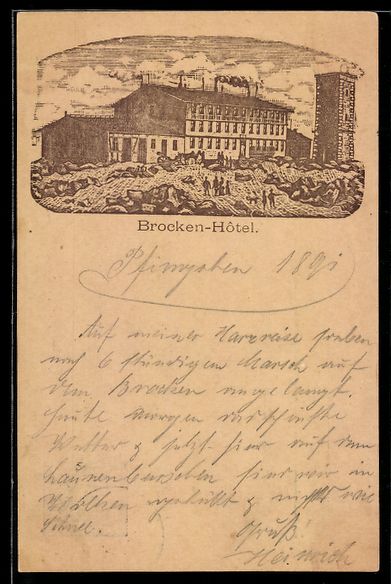 Brocken-Hôtel.
Pfingsten 1891
Auf meiner Harzreise soeben
nach 6 stündigem Marsch auf
dem Brocken angelangt.
Heute morgen das schönste
Wetter & jetzt hier auf dem
sind wir in
Wolken gehüllt & nichts wie
Schnee.
Gruß
Heinrich